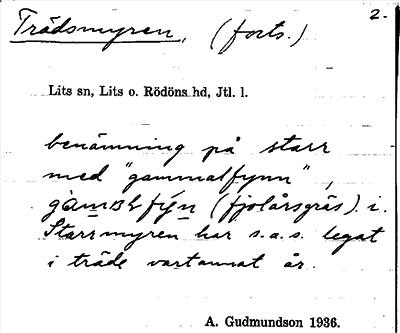 Trädsmyren, (forts.) 2.
Lits sn, Lits o. Rödöns hd, Jtl. l.
benämning på starr
med "gammalfynn",
(fjolårsgräs) i.
Starrmyren har s.a.s. legat
i träde vartannat år.
A. Gudmundson 1936.